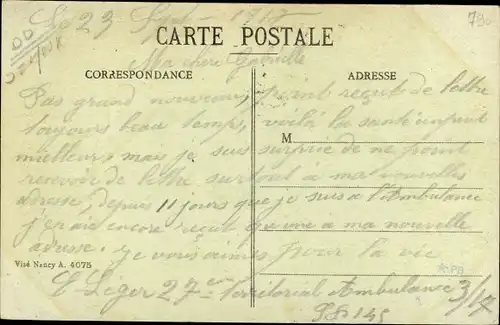 Le 23 Sept 1917
CARTE POSTALE
Ma chère Gabrielle
CORRESPONDANCE
ADRESSE
Pas grand nouveau, point reçut de lettre
toujours beau temps, voilà la santé un peut
M
meilleurs mais je suis surprise de ne point
recevoir de lettre surtout à ma nouvelles
adresse, depuis 11 jours que je suis a l'Ambulance
j'ai encore reçut qu'une a ma nouvelle
adresse. je vous aimes pour la vie
Visé Nancy A. 4075
E Léger 27e territorial Ambulance 3/17
SP 145